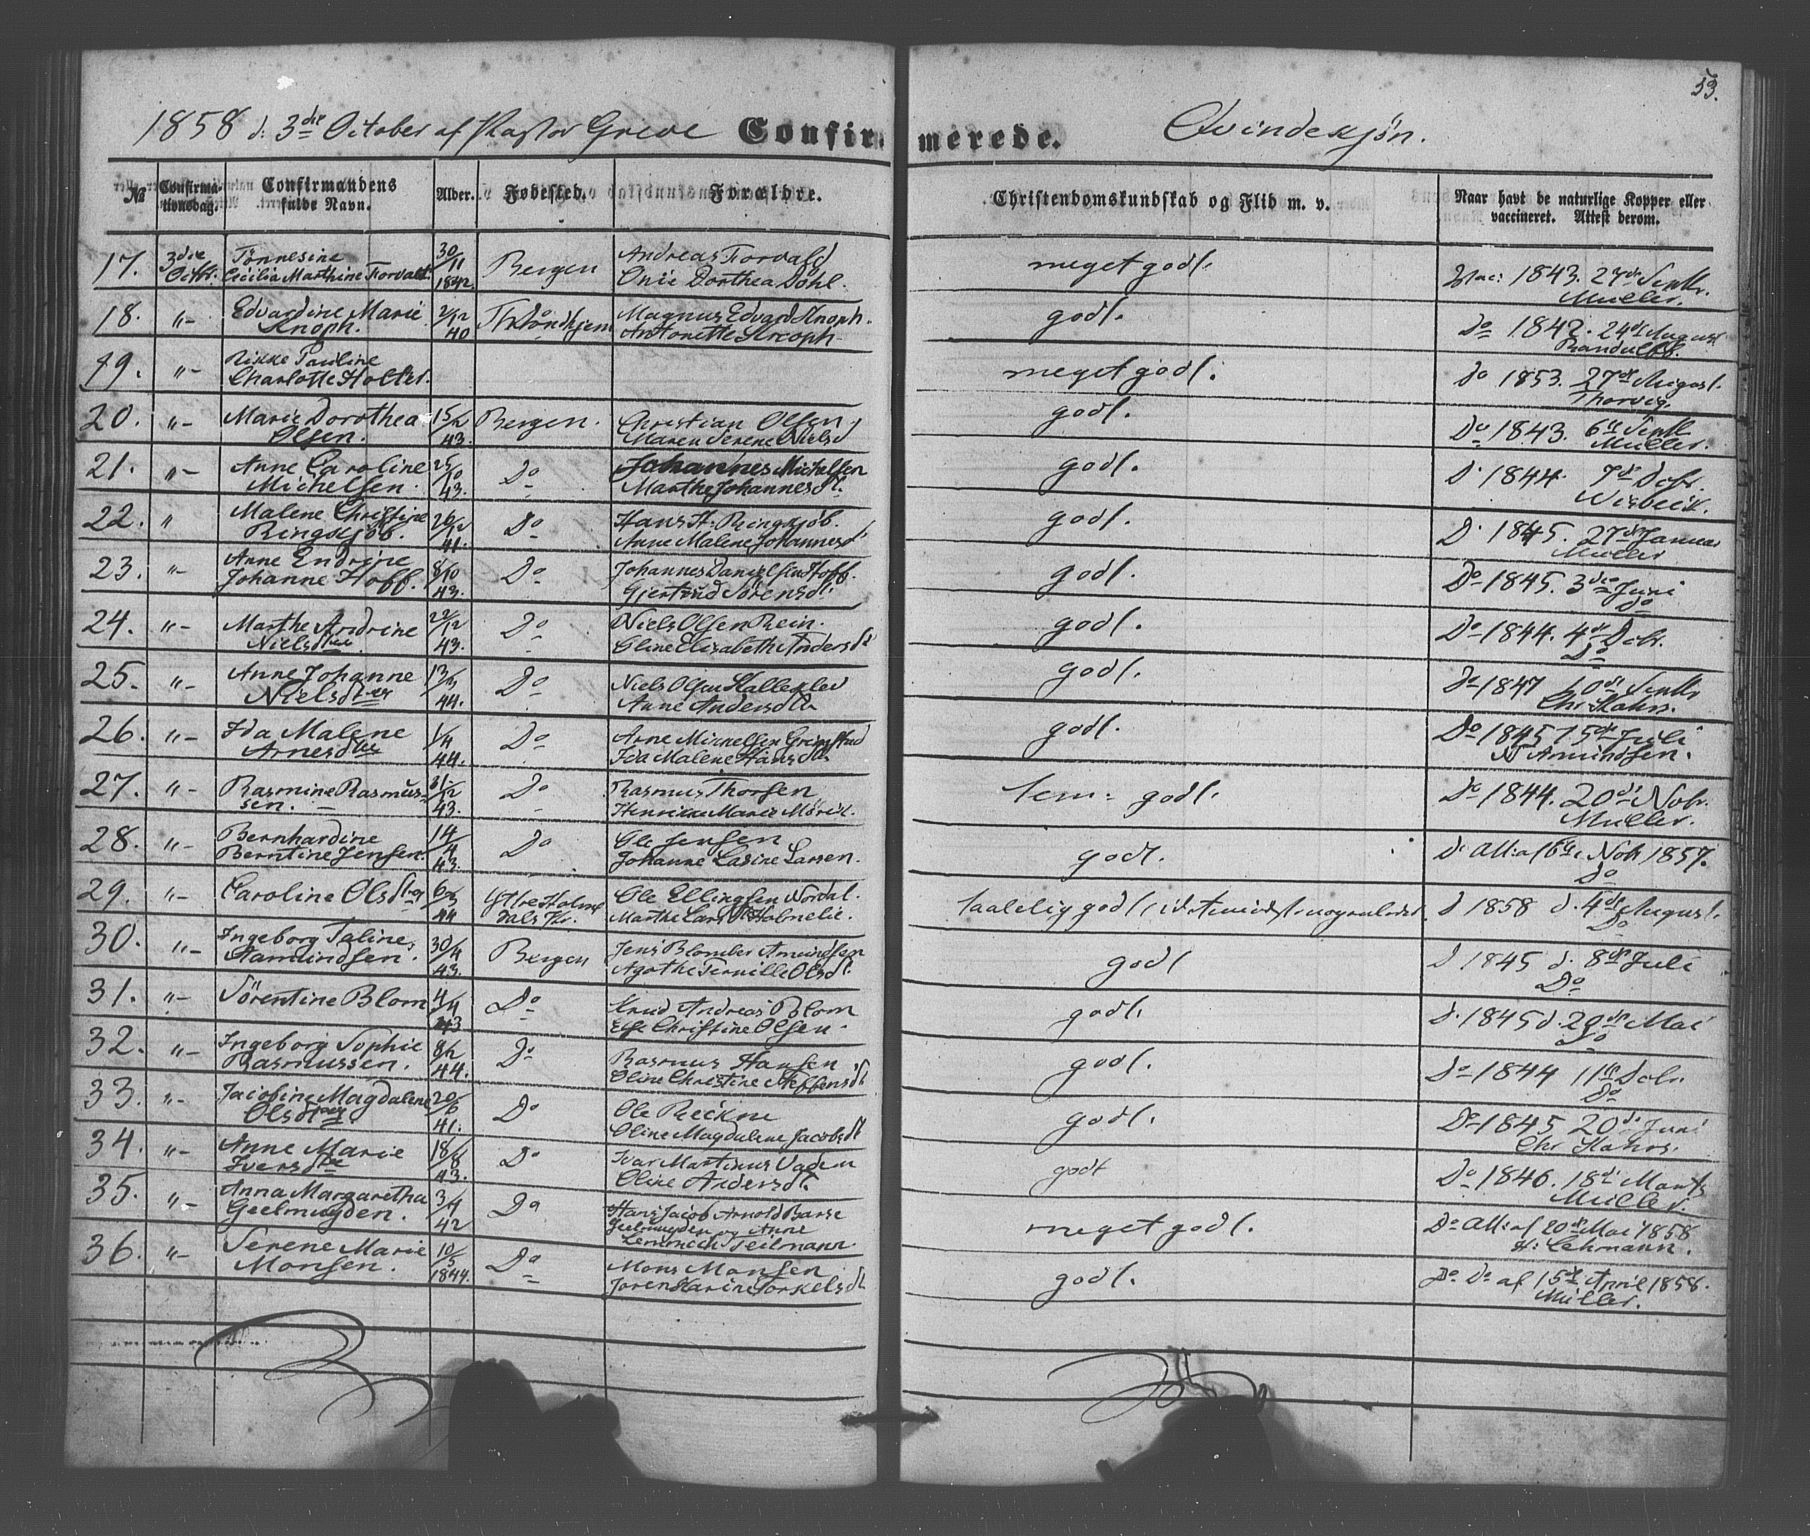 53.
1858 d: 3die October af Pastor Greve Confirmerede. Qvindekjøn.
№ Confirmationsdag. Confirmandens fulde Navn. Alder. Fødested. Forældre. Christendomskundskab og Flid m. v. Naar havt de naturlige Kopper eller vaccineret. Attest derom.
17. 3die Octbr. Tønnesine Cecilia Marthine Forvald 30/11 1842. Bergen Andreas Forvald Onie Dorthea Døhl. meget godt. Vac: 1843. 27de Septbr. Müller.
18. "- Edvardine Marie Knoph. 2/12 40 Throndhjem Magnus Edvard Knoph. Antonette Knoph godt. Do 1842. 24de August Randulff.
19. "- Rikke Pauline Charlotte Holter. meget godt. do 1853. 27de August. Thorvig.
20. "- Marie Dorothea Olsen. 15/12 43. Bergen. Christian Olsen, Maren Serene Nielsd godt. Do 1843. 6te Septbr Müller.
21. "- Anne Caroline Michelsen. 25/10 43. Do Johannes Michelsen Marthe Johannesdt. godt. D. 1844. 7de Decbr. Wisbeck.
22. " Malene Christine Ringsjøb. 26/12 41. Do Hans H. Ringsjøb. Anne Malene Johannesdt godt. D. 1845. 27de Januar Müller
23. "- Anne Endrine Johanne Hoff. 8/10 43. Do Johannes Danielsen Hoff. Gjertrud Sørensdt. godt. Do 1845. 3die Juni do
24. "- Marthe Andrine Nielsdtter 22/12 43. Do Niels Olsen Rein. Oline Elisabeth Andersdt godt. Do 1844. 4de Decbr. Do
25. "- Anne Johanne Nielsdtter 13/3 44. Do Niels Olsen Halleklev Anne Andersdtr godt. Do 1847 10de Septbr Chr Kahrs.
26. "- Ida Malene Arnesdtter 1/4 44. Do Arne Mikkelsen Grimstad Ida Malene Hansdtr godt. Do 1845 15de Juli N Amundsen.
27. "- Rasmine Rasmussen. 31/12 43. Do Rasmus Thorsen Henrikke Marie Mørik. tem: godt. Do 1844. 20de Nobr. Müller.
28. "- Bernhardine Berntine Jensen. 14/4 43. Do Ole Jensen Johanne Lasine Larsen. godt. D. Att: af 6te Nobr 1857. Do
29. "- Caroline Olsdtter 6/3 44 Ytre Holmedals Kr. Ole Ellingsen Nordal. Marthe Larsdtr Holmelie. taalelig godt, d 1858 d. 4de August. Do
30. "- Ingeborg Taline Aamundsen. 30/4 43. Bergen Jens Blomber Amundsen Agathe Pernille Olsdt. godt d 1845 d. 8de Juli Do
31. "- Sørentine Blom 4/4 43 Do Knud Andreas Blom Else Christine Olsen. godt. d. 1845 d. 29de Mai do
32. "- Ingeborg Sophie Rasmussen. 8/2 44. Do Rasmus Hansen Oline Christine Steffensdt godt. Do 1844 11te Decbr. Do
33. "- Jacobine Magdalene Olsdtter 20/6 41. Do Ole Oline Magdalene Jacobsdt godt. Do 1845 20de Juni Chr Kahrs.
34. "- Anne Marie Iversdtr 18/8 43. Do Ivar Martinus Oline Andersdt. godt Do 1846. 18de Marts Müller.
35. "- Anna Margaretha Geelmuyden. 3/4 42 Do Hans Jacob Arnold Barse Geelmuyden og Anne Lemmich Teilmann. meget godt. Do Att: af 20de Mai 1858 H: Lehmann.
36. "- Serene Marie Monsen. 10/5 1844. Do Mons Monsen Joren Karine Torkelsdt godt. Do Do af 15de April 1858. Müller.